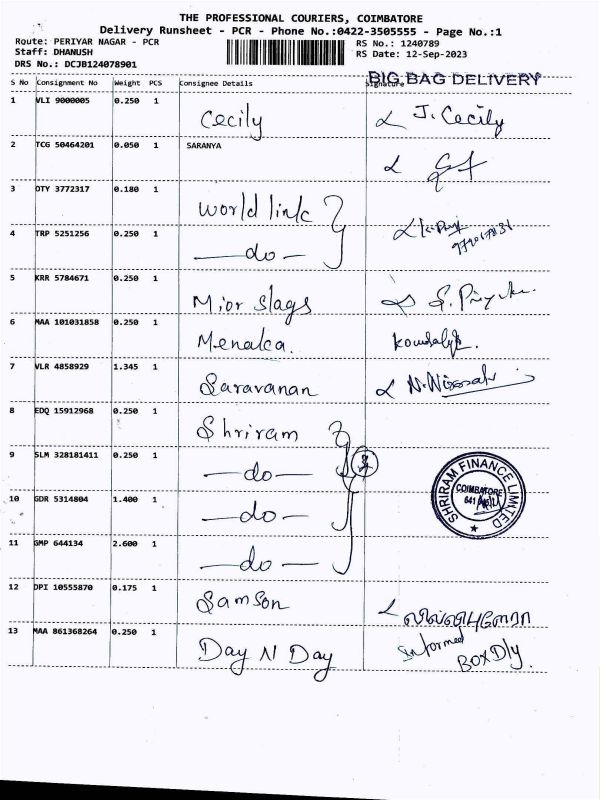 THE PROFESSIONAL COURIERS, COIMBATORE
Delivery Runsheet - PCR - Phone No.:0422-3505555 - Page No.:1
Route: PERIYAR NAGAR - PCR
RS No.: 1240789
Staff: DHANUSH
RS Date: 12-Sep-2023
DRS No.: DCJB124078901
BIG BAG DELIVERY
S No Consignment No Weight PCS Consignee Details Signature
1 VLI 9000005 0.250 1 Cecily J. Cecily
2 TCG 50464201 0.050 1 SARANYA
3 OTY 3772317 0.180 1 World link
4 TRP 5251256 0.250 1 —do—
5 KRR 5784671 0.250 1 Mior slags
6 MAA 101031858 0.250 1 Menaka.
7 VLR 4858929 1.345 1 Saravanan
8 EDQ 15912968 0.250 1 Shriram
9 SLM 328181411 0.250 1 —do—
SHRIRAM FINANCE LIMITED
COIMBATORE
10 GDR 5314804 1.400 1 —do—
11 GMP 644134 2.600 1 —do—
12 DPI 10555870 0.175 1 Samson
13 MAA 861368264 0.250 1 Day N Day Informed
BOX Dly.